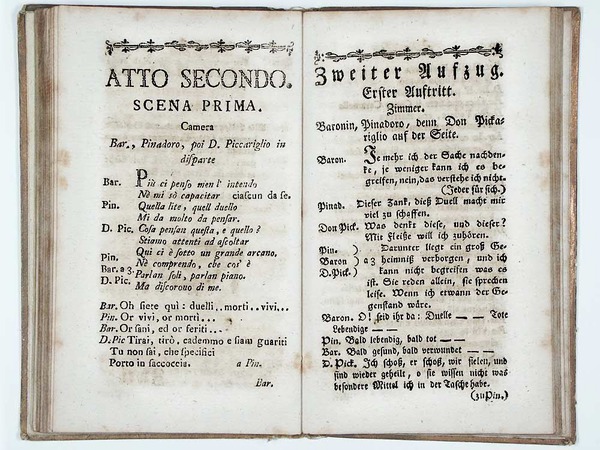 ATTO SECONDO.
SCENA PRIMA.
Camera
Bar., Pinadoro, poi D. Piccariglio in
disparte
Bar. Più ci penso men l' intendo
Nè mi sò capacitar ciascun da se.
Pin. Quella lite, quell duello
Mi da molto da pensar.
D. Pic. Cosa pensan questa, e quello?
Stiamo attenti ad ascoltar
Pin. Qui ci è sotto un grande arcano.
Bar. a 3. Nè comprendo, che cos' è
D. Pic. Parlan soli, parlan piano.
Ma discorono di me.
Bar. Oh siete quì: duelli.. morti.. vivi...
Pin. Or vivi, or morti...
Bar. Or sani, ed or feriti...
D. Pic Tirai, tirò, cademmo e siam guariti
Tu non sai, che specifici
Porto in saccoccia. a Pin.
Bar.
Zweiter Aufzug.
Erster Auftritt.
Zimmer.
Baronin, Pinadoro, denn Don Pickariglio
auf der Seite.
Baron. Je mehr ich der Sache nachden-
ke, je weniger kann ich es be-
greifen, nein, das verstehe ich nicht.
(Jeder für sich.)
Pinad. Dieser Zank, dieß Duell macht mir
viel zu schaffen.
Don Pick. Was denkt diese, und dieser?
Mit Fleiße will ich zuhören.
Pin. ) Darunter liegt ein groß Ge-
Baron ) a 3 heimniß verborgen, und ich
D. Pick.) kann nicht begreifen was es
ist. Sie reden allein, sie sprechen
leise. Wenn ich etwann der Ge-
genstand wäre.
Baron. O! seid ihr da: Duelle — — Tote
Lebendige — —
Pin. Bald lebendig, bald tot — —
Bar. Bald gesund, bald verwundet — —
D. Pick. Ich schoß, er schoß, wir fielen, und
sind wieder geheilt, o sie wissen nicht was
besondere Mittel ich in der Tasche habe.
(zu Pin.)